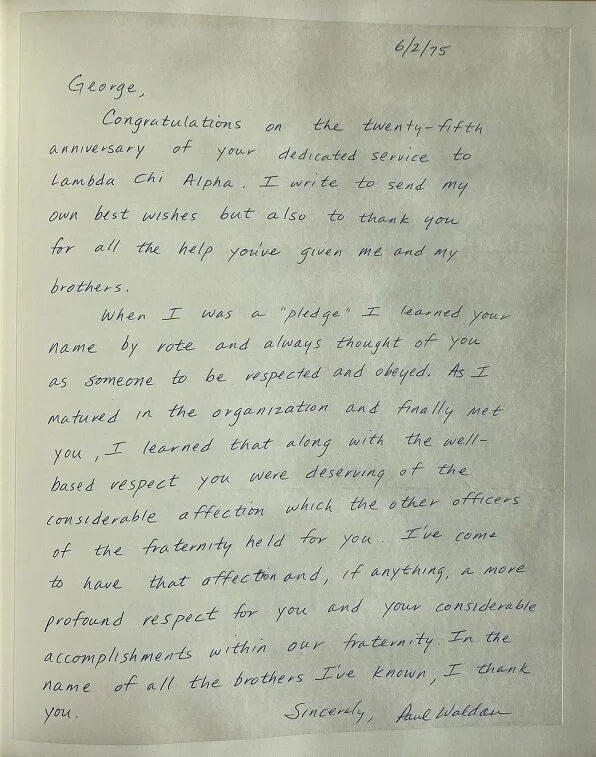 6/2/75
George,
Congratulations on the twenty-fifth
anniversary of your dedicated service to
Lambda Chi Alpha. I write to send my
own best wishes but also to thank you
for all the help you've given me and my
brothers.
When I was a "pledge" I learned your
name by rote and always thought of you
as someone to be respected and obeyed. As I
matured in the organization and finally met
you, I learned that along with the well-
based respect you were deserving of the
considerable affection which the other officers
of the fraternity held for you. I've come
to have that affection and, if anything, a more
profound respect for you and your considerable
accomplishments within our fraternity. In the
name of all the brothers I've known, I thank
you. Sincerely, Paul Waldau